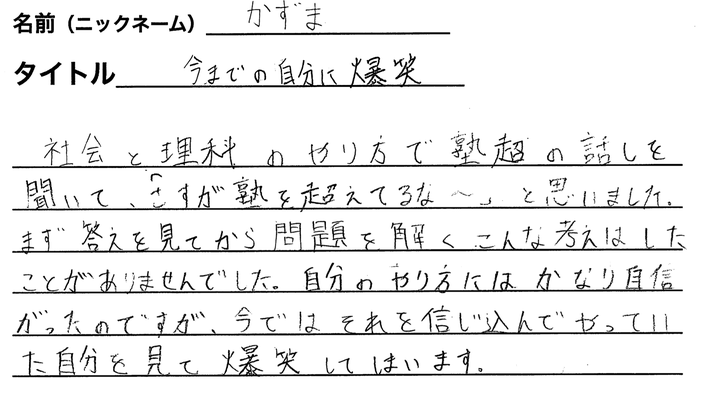 名前（ニックネーム） かずま
タイトル 今までの自分に爆笑
社会と理科のやり方で塾超の話しを
聞いて、「さすが塾を超えてるな〜」と思いました。
まず答えを見てから問題を解くこんな考えはした
ことがありませんでした。自分のやり方にはかなり自信
がったのですが、今ではそれを信じ込んでやってい
た自分を見て爆笑してはいます。